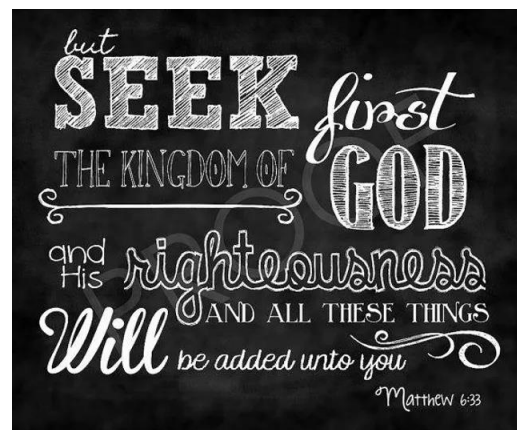 but
SEEK first
THE KINGDOM OF GOD
and His righteousness
AND ALL THESE THINGS
Will be added unto you
Matthew 6:33
PROOF